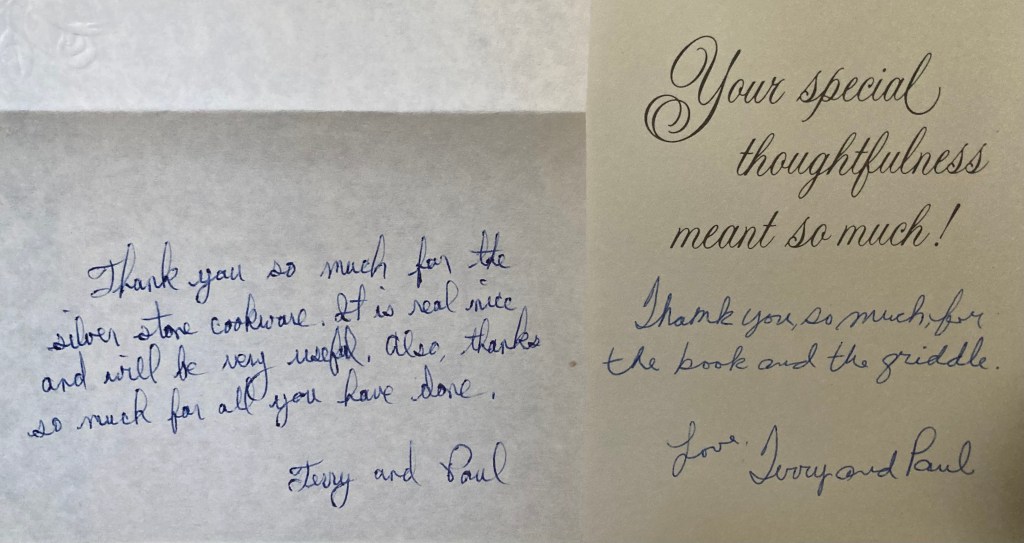 Thank you so much for the
silver stone cookware. It is real nice
and will be very useful. Also, thanks
so much for all you have done.
Terry and Paul
Your special
thoughtfulness
meant so much!
Thank you, so much, for
the book and the griddle.
Love,
Terry and Paul